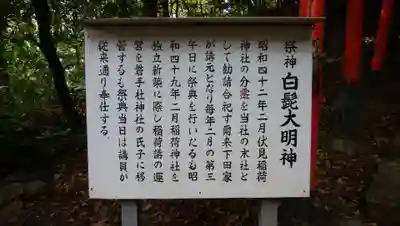 祭神 白髭大明神
昭和四十二年二月伏見稲荷
神社の分霊を当社の末社と
して勧請合祀す爾来下田家
が講元となり毎年二月の第三
午日に祭典を行いたるも昭
和四十九年二月稲荷神社を
独立新築に際し稲荷講の運
営を岩手社神社の氏子に移
管するも祭典当日は講員が
従来通り奉仕する。